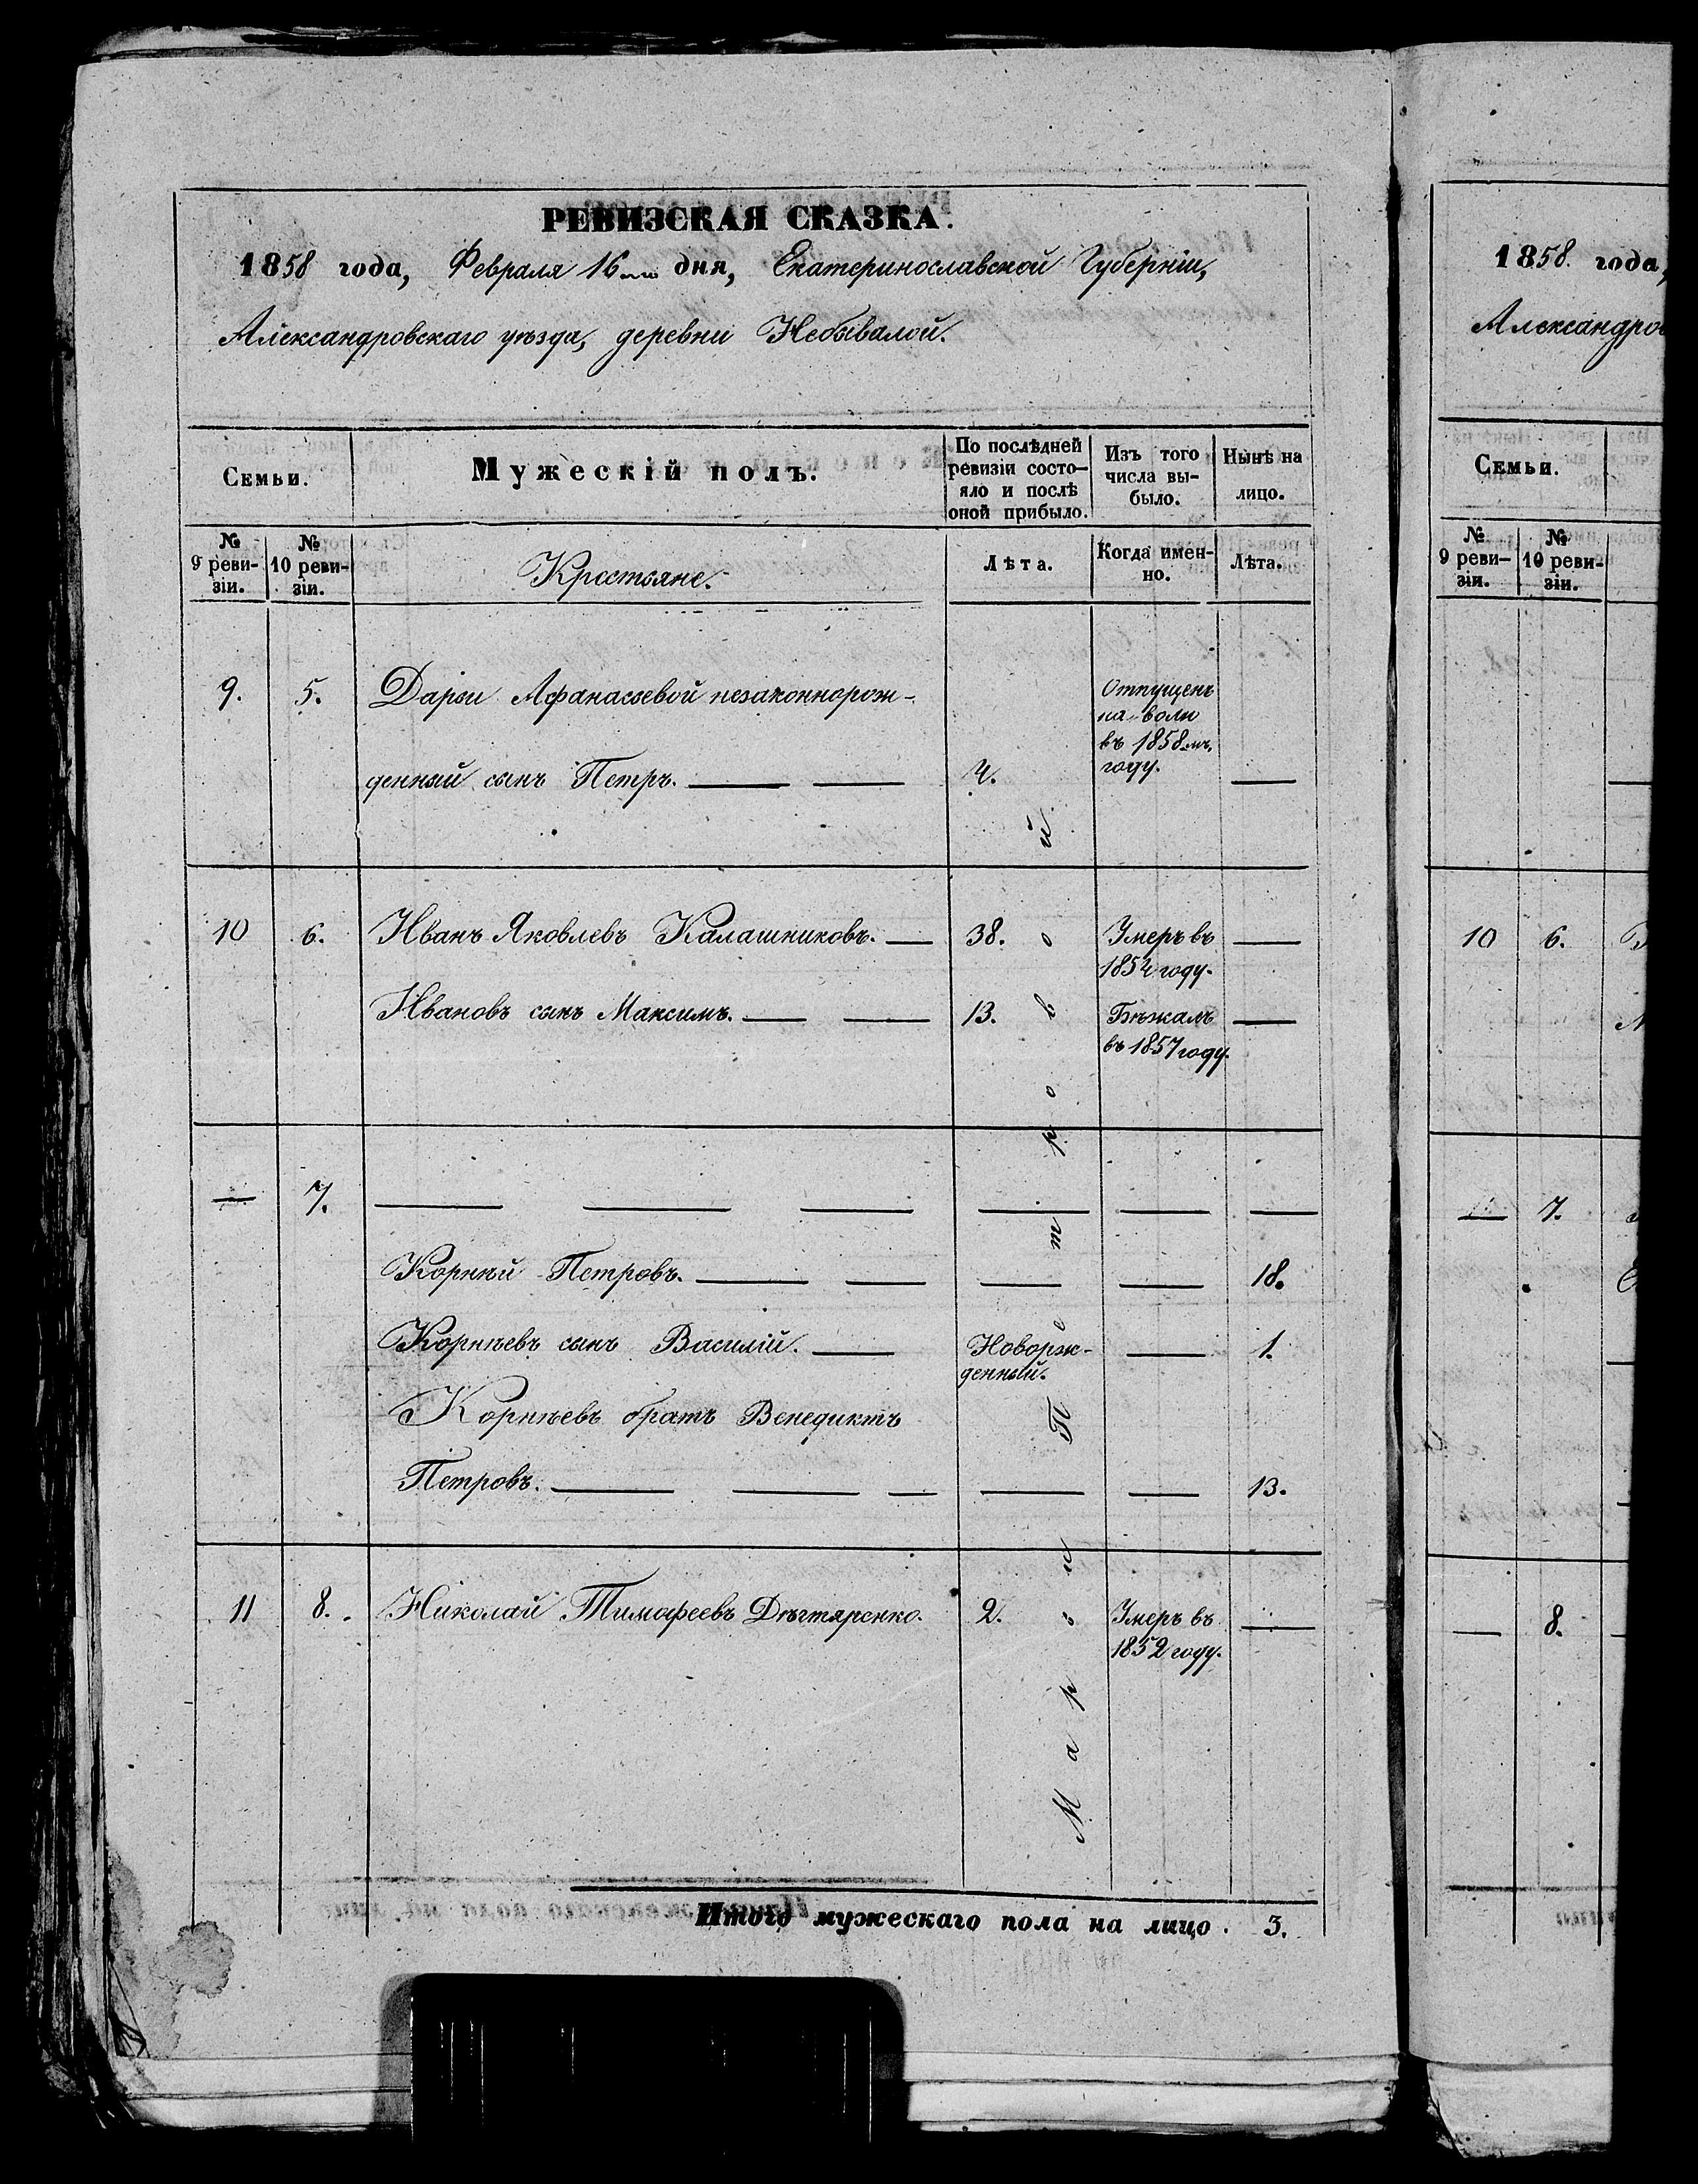 РЕВИЗСКАЯ СКАЗКА.
1858 года, Февраля 16го дня, Екатеринославской Губерніи,
Александровскаго уѣзда, деревни Небывалой.
Семьи.
Мужескій полъ.
По послѣдней
ревизіи состо-
яло и послѣ
оной прибыло.
Изъ того
числа вы-
было.
Нынѣ на
лицо.
№
9 реви-
зіи.
№
10 реви-
зіи.
Крестьяне.
Лѣта.
Когда имен-
но.
Лѣта.
9. 5. Дарьи Афанасьевой незаконнорож-
денный сынъ Петръ. 4.
Отпущенъ
на волю
въ 1858мъ
году.
10 6. Иванъ Яковлевъ Калашниковъ. 38. Умеръ въ
1854 году.
Ивановъ сынъ Максимъ. 13. Бѣжалъ
въ 1857 году.
7.
Корнѣй Петровъ. 18.
Корнѣевъ сынъ Василій. Новорж-
денный. 1.
Корнѣевъ братъ Венедиктъ
Петровъ. 13.
11 8. Николай Тимофеевъ Дѣгтяренко. 2. Умеръ въ
1852 году.
Марья Петровой
Итого мужескаго пола на лицо. 3.
1858 года,
Александров
Семьи.
№
9 реви-
зіи.
№
10 реви-
зіи.
10 6.
7.
8.